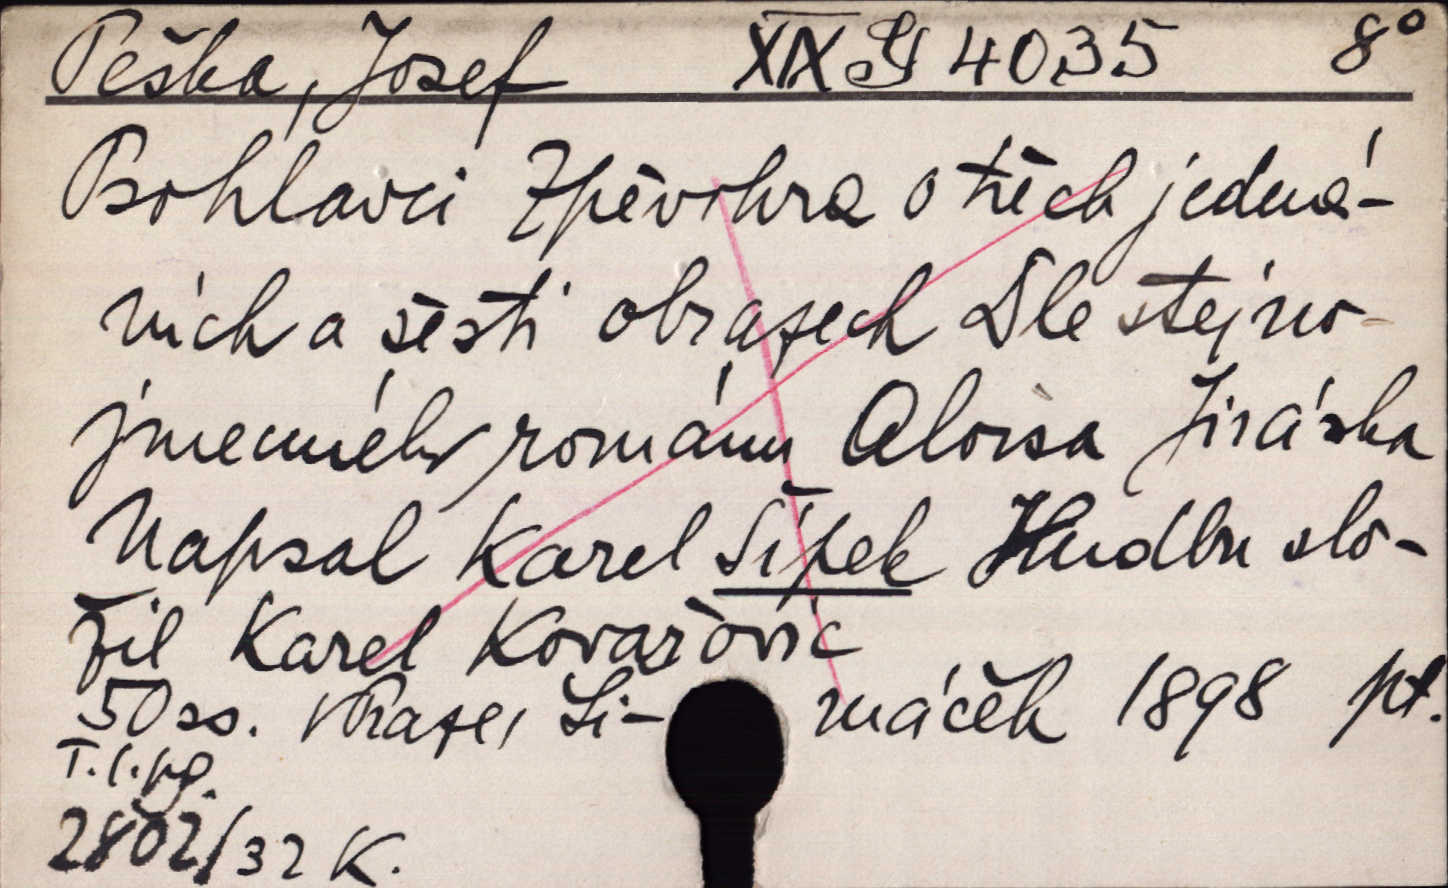 Peška, Josef XIX G 4035 8°
Psohlavci Zpěvohra o třech jedná-
ních a šesti obrazech Dle stejno-
jmenného románu Aloisa Jiráska
Napsal Karel Šípek Hudbu slo-
žil Karel Kovařovic
50 ss. v Praze, Ši-máček 1898 pt.
T.l.pg.
2802/32 K.